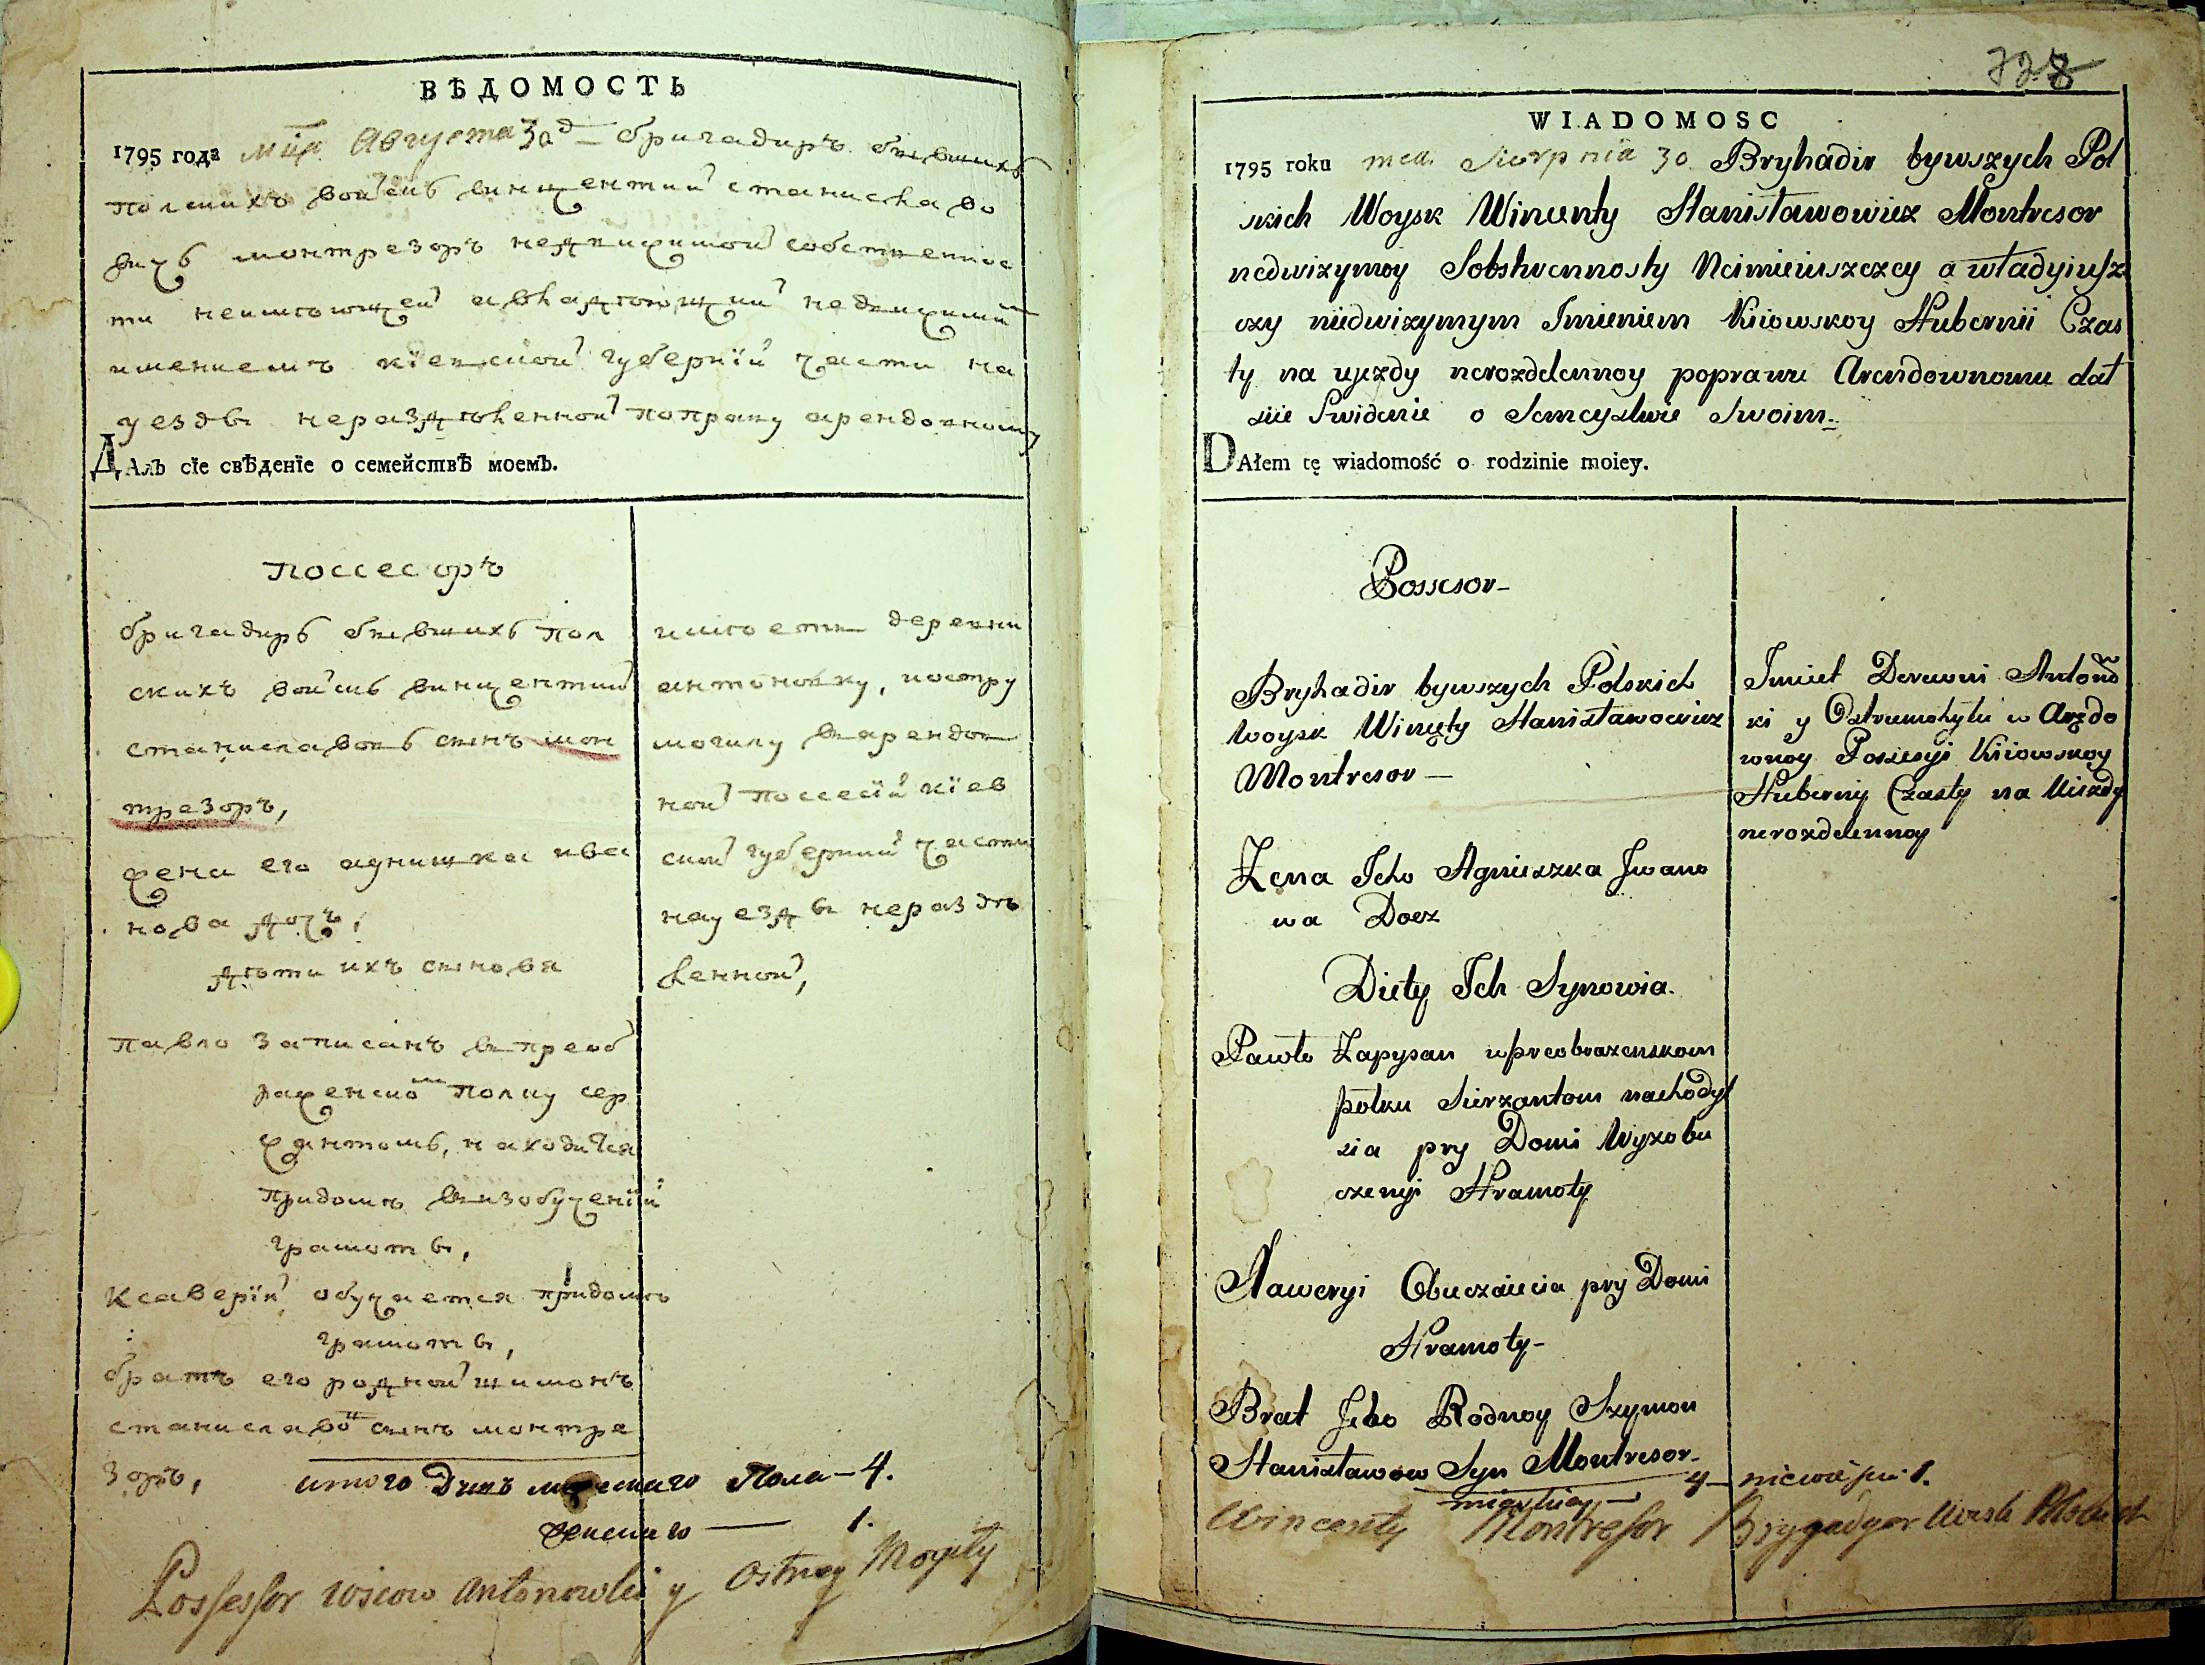 ВѢДОМОСТЬ
1795 года мца Августа 30 д бригадиръ бывшихъ
полскихъ войскъ винцентий станиславо
вичъ монтрезоръ недвижимой собственнос
ти неимѣющей авладѣющий недвижимимъ
имениемъ кїевской губернїй части на
уезды нераздѣленной поправу арендовному
ДАлъ сїе свѣденїе о семействѣ моемъ.
поссесоръ
бригадиръ бывшихъ пол
скихъ войскъ винцентий
станиславовъ сынъ мон
трезоръ,
жена его агнишка ива
нова дочъ,
дѣти ихъ сыновя
павло записанъ впреоб
раженскомъ полку сер
жантомъ, находился
придомѣ визобученїй
грамоты,
ксаверїй обучается придомѣ
грамоты,
братъ его родной шимонъ
станиславовъ сынъ монтре
зоръ,
имѣеть деревни
антоновку, иостру
могилу варендов
ной поссесїй кїев
ской губерний части
науезды нераздѣ
ленной,
итого Душъ мужескаго Пола — 4.
женскаго — 1.
Possessor wsiow Antonowki y Ostrey Mogiły
728
WIADOMOSC
1795 roku mca Sierpnia 30 Bryhadir bywszych Pol
skich Woysk Wincenty Stanisławowicz Montresor
nedwizymoy Sobstwennosty Neimieiuszczey a władyiusz
czy niedwizymym Imieniem Kiiowskoy Hubernii Czas
ty na ujezdy nerozdelennoy poprawu Arendownomu dał
siie Swidenie o Semeystwie Swoim.
DAłem tę wiadomość o rodzinie moiey.
Possesor
Bryhadir bywszych Polskich
Woysk Wincęty Stanisławowicz
Montresor —
Zena Jeho Agnieszka Jwano
wa Docz
Diety Ich Synowia.
Pawło Zapysan wpreobrazenskom
połku Sierzantom nachodył
sia pry Domi Wyzobu
czenyi Hramoty
Xaweryi Obuczaiecia pry Domi
Hramoty —
Brat Jeho Rodnoy Szymon
Stanisławow Syn Montresor
Imiet Derewni Antonow
ki y Ostrumohyłu w Arędo
wnoy Possesyi Kiiowskoy
Huberny Czasty na Uiezdy
nerozdelennoy
4 — 1.
Wincenty Montresor Brygadyer Woisk Polskich